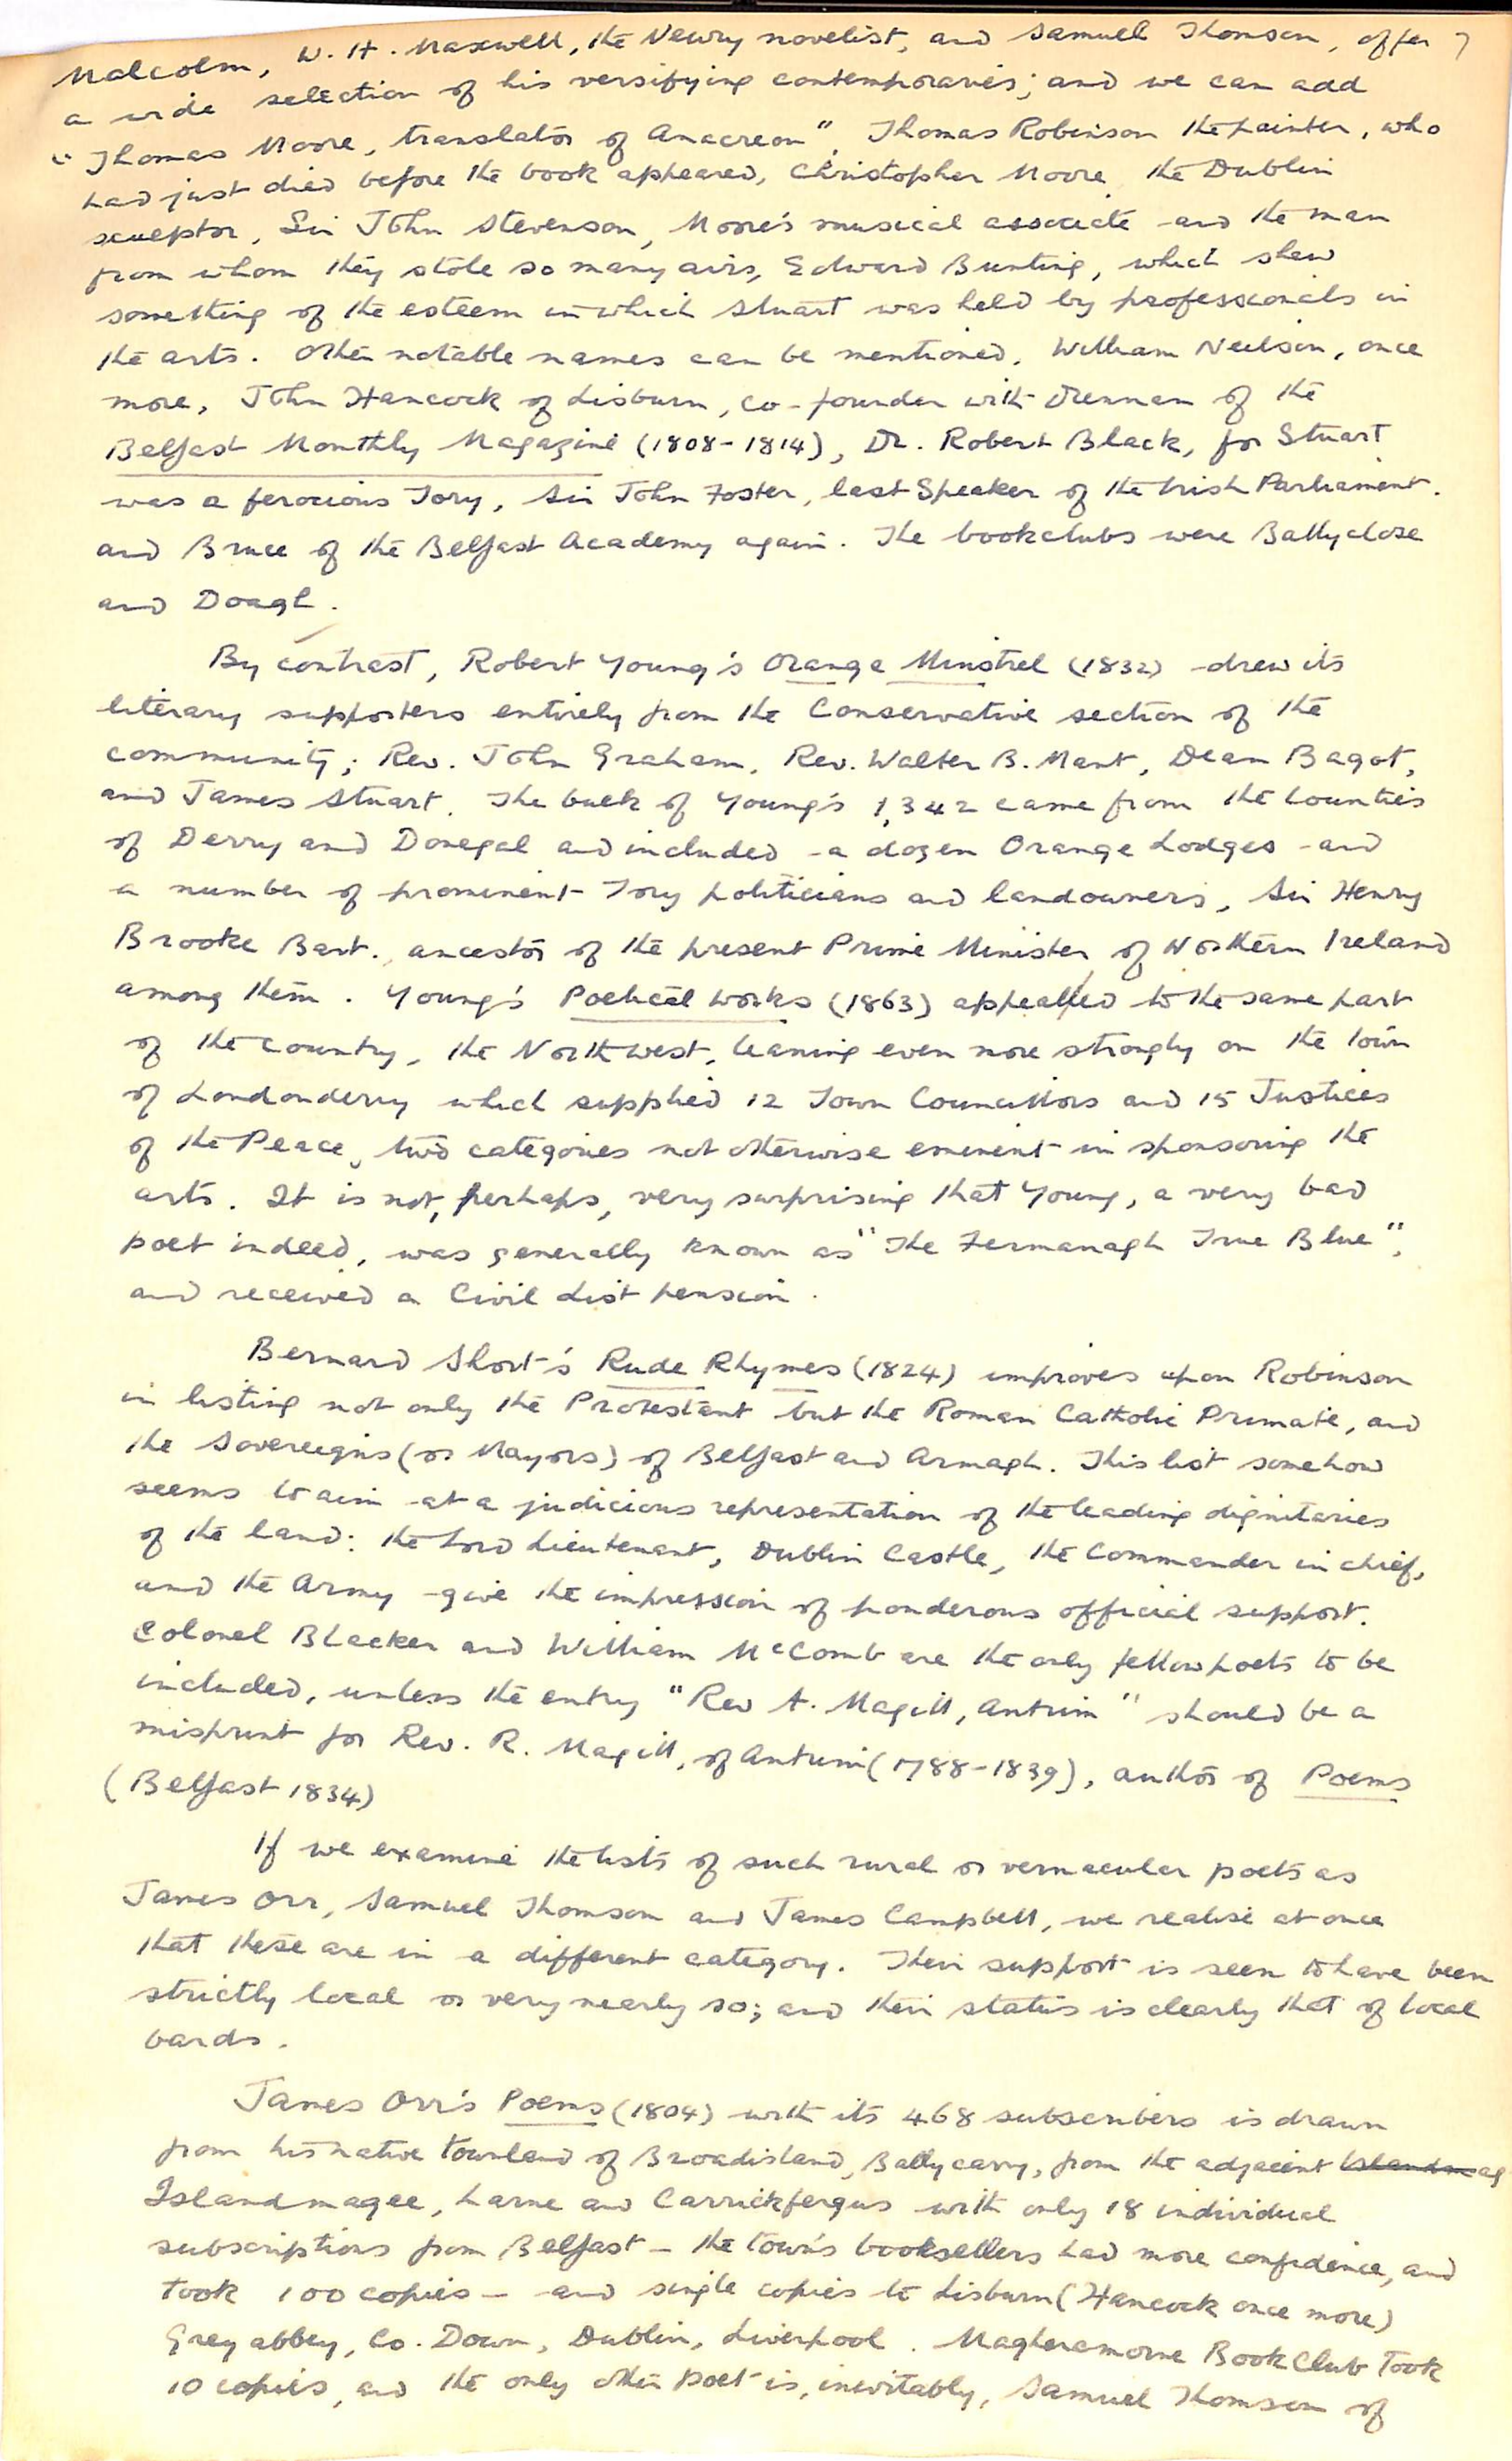 Malcolm, W. H. Maxwell, the Newry novelist, and Samuel Thomson, offer 7
a wide selection of his versifying contemporaries; and we can add
"Thomas Moore, translator of Anacreon", Thomas Robinson the painter, who
had just died before the book appeared, Christopher Moore the Dublin
sculptor, Sir John Stevenson, Moore's musical associate and the man
from whom they stole so many airs, Edward Bunting, which shew
something of the esteem in which Stuart was held by professionals in
the arts. Other notable names can be mentioned, William Neilson, once
more, John Hancock of Lisburn, co-founder with Drennan of the
Belfast Monthly Magazine (1808-1814), Dr. Robert Black, for Stuart
was a ferocious Tory, Sir John Foster, last Speaker of the Irish Parliament.
and Bruce of the Belfast Academy again. The bookclubs were Ballyclose
and Doagh.
By contrast, Robert Young's Orange Minstrel (1832) drew its
literary supporters entirely from the Conservative section of the
community; Rev. John Graham, Rev. Walter B. Mant, Dean Bagot,
and James Stuart. The bulk of Young's 1,342 came from the Counties
of Derry and Donegal and included a dozen Orange Lodges and
a number of prominent Tory politicians and landowners, Sir Henry
Brooke Bart., ancestor of the present Prime Minister of Northern Ireland
among them. Young's Poetical Works (1863) appealed to the same part
of the country, the North west, leaning even more strongly on the town
of Londonderry which supplied 12 Town Councillors and 15 Justices
of the Peace, two categories not otherwise eminent in sponsoring the
arts. It is not, perhaps, very surprising that Young, a very bad
poet indeed, was generally known as "The Fermanagh True Blue",
and received a Civil List pension.
Bernard Short's Rude Rhymes (1824) improves upon Robinson
in listing not only the Protestant but the Roman Catholic Primate, and
the Sovereigns (or Mayors) of Belfast and Armagh. This list somehow
seems to aim at a judicious representation of the leading dignitaries
of the land: the Lord Lieutenant, Dublin Castle, the Commander in chief,
and the Army give the impression of ponderous official support.
Colonel Blacker and William McComb are the only fellow poets to be
included, unless the entry "Rev A. Magill, Antrim" should be a
misprint for Rev. R. Magill, of Antrim (1788-1839), author of Poems
(Belfast 1834)
If we examine the lists of such rural or vernacular poets as
James Orr, Samuel Thomson and James Campbell, we realise at once
that these are in a different category. Their support is seen to have been
strictly local or very nearly so; and their status is clearly that of local
bards.
James Orr's Poems (1804) with its 468 subscribers is drawn
from his native townland of Broadisland, Ballycarry, from the adjacent Islandmag
Islandmagee, Larne and Carrickfergus with only 18 individual
subscriptions from Belfast - the town's booksellers had more confidence, and
took 100 copies - and single copies to Lisburn (Hancock once more)
Greyabbey, Co. Down, Dublin, Liverpool. Magheramorne Book Club took
10 copies, and the only other poet is, inevitably, Samuel Thomson of